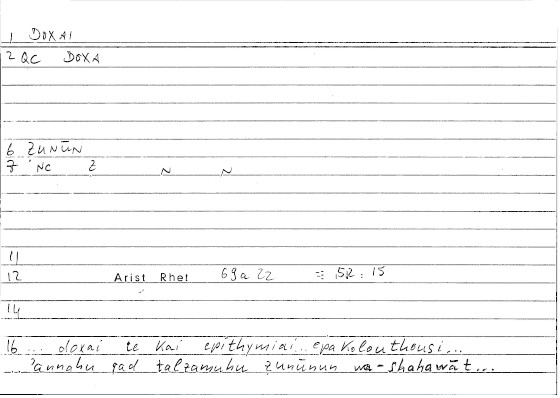 1 DOXAI
2 QC DOXA
6 ẒUNŪN
7 NC Ẓ N N
11
12 Arist Rhet 69a22 = 52:15
14
16 ... doxai te kai epithymiai epakolouthousi...
'annahu qad talzamuhu ẓunūnun wa-shahawāt...